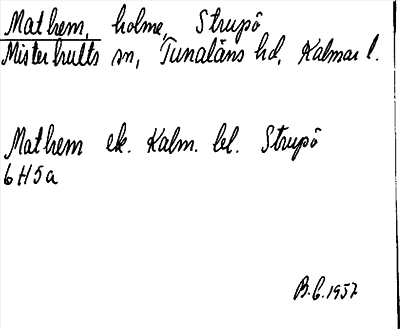 Mathem, holme, Strupö
Misterhults sn, Tunaläns hd, Kalmar l.
Mathem ek. Kalm. bl. Strupö
6H5a
B.G. 1957